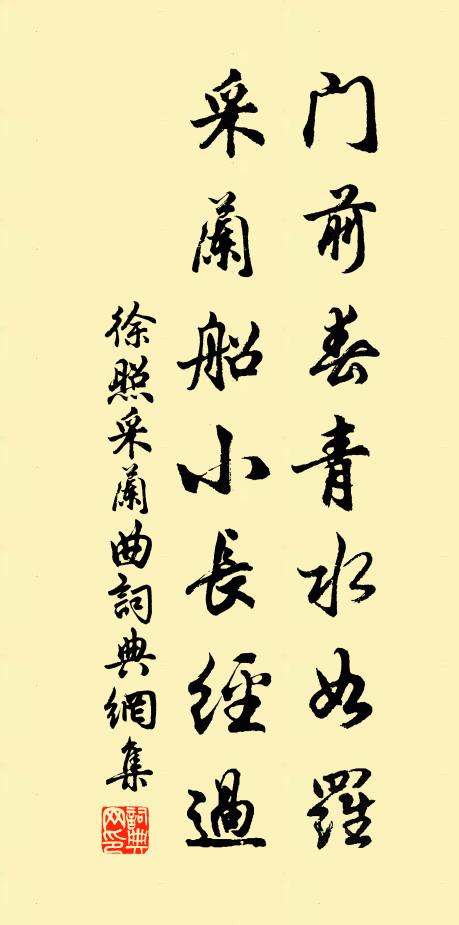 门前春青水如羅
采蘭船小長經過
徐照采蘭曲詞典網集
詞典网印